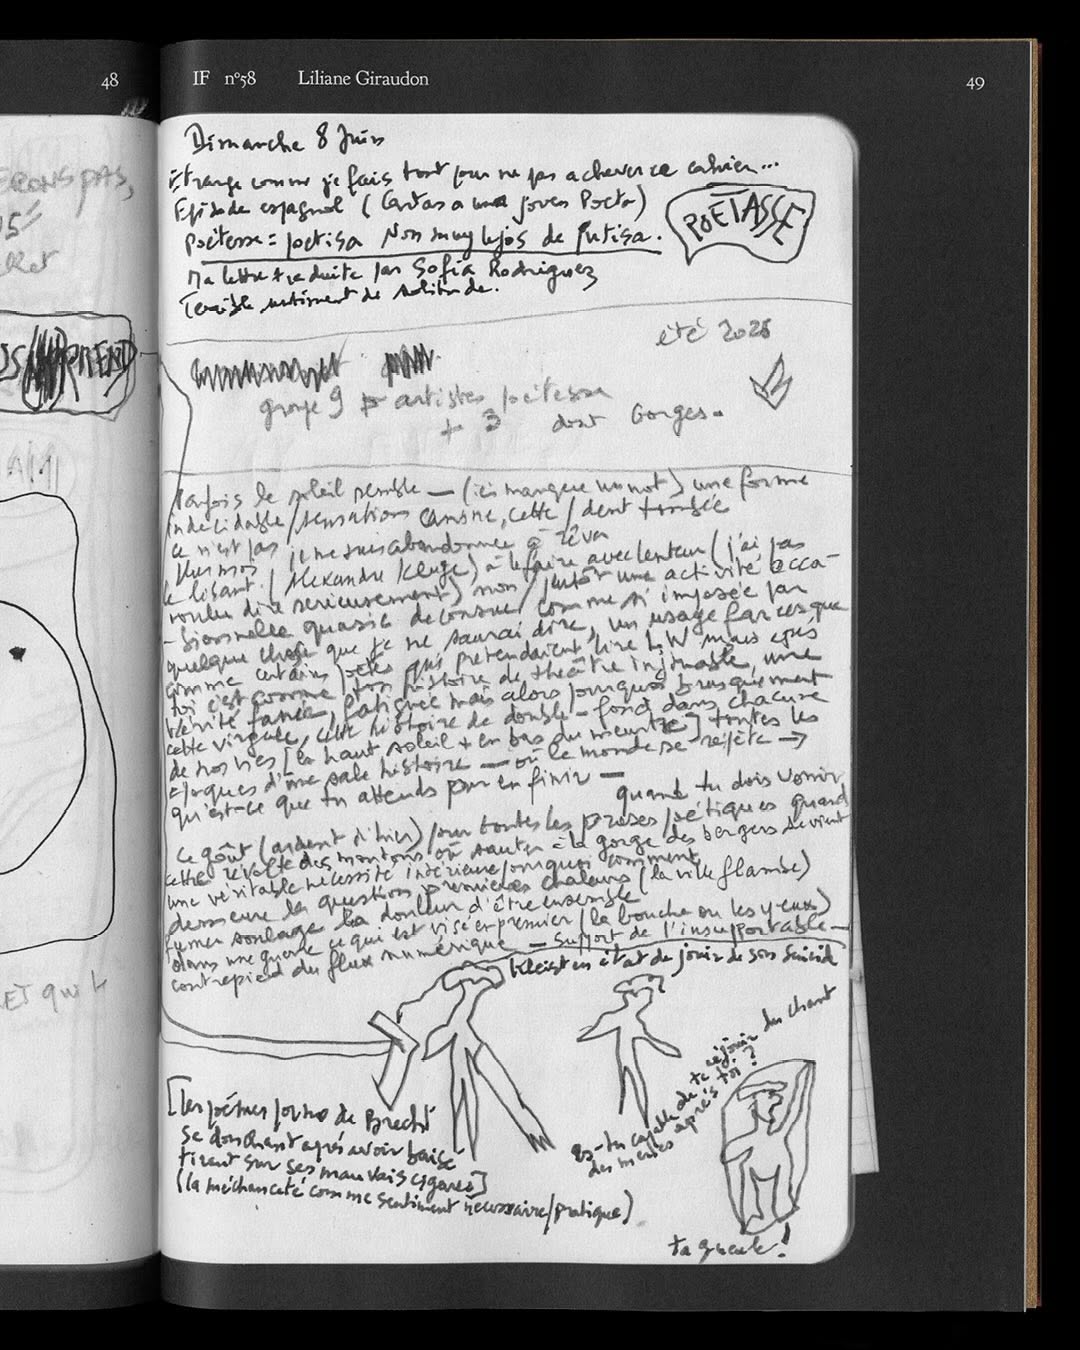 48
IF n°58 Liliane Giraudon
49
ERONS PAS,
Dimanche 8 Juin
Étrange comme je fais tout pour ne pas achever ce cahier...
Episode espagnol (Cartas a una joven Poeta)
POËTASSE
poétesse = poetisa Non muy lejos de putisa.
Ma lettre traduite par Sofia Rodriguez
Terrible sentiment de solitude.
été 2025
groupe 9 artistes poétesses
+ 3 dont Gorges.
Parfois le soleil semble — (ici manque un mot) une forme
indécidable / sensations canine, cette / dent tombée
ce n'est pas je me suis abandonnée à rêver
le lisant / (Alexandre Kluge) à le faire avec lenteur (j'ai pas
voulu dire sérieusement) non / plutôt une activité occa-
-sionnelle quasi comme si imposée par
quelque chose que je ne saurai dire, un usage farcesque
comme certains poètes qui prétendaient lire L.W mais après
toi c'est comme ton histoire de théâtre injouable, une
vérité fanée, fatiguée mais alors pourquoi brusquement
cette virgule, cette histoire de double-fond dans chacune
de nos vies [là haut soleil + en bas du meurtre] toutes les
époques d'une sale histoire — où le monde se répète →
qu'est-ce que tu attends pour en finir —
quand tu dois vomir
ce goût (ardent d'hier) pour toutes les proses poétiques quand
cette révolte des moutons où sauter à la gorge des bergers devient
une véritable nécessité intérieure pourquoi comment
demeure la question premières chaleurs (la ville flambe)
fumer soulage la douleur d'être ensemble
dans une guerre ce qui est visé en premier (la bouche ou les yeux)
contrepied du flux numérique — support de l'insupportable —
Kleist en état de jouir de son suicide
Es-tu capable de te réjouir du chant
des merles après toi ?
[les poèmes porno de Brecht
se douchant après avoir baisé
tirant sur ses mauvais cigares]
(la méchanceté comme sentiment nécessaire/pratique)
ta gueule !